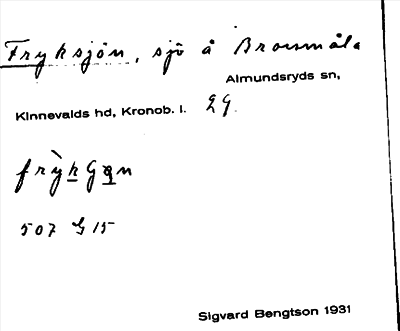 Fryksjön, sjö å Brorsmåla
Almundsryds sn,
Kinnevalds hd, Kronob. l. 29.
507 G 15
Sigvard Bengtson 1931